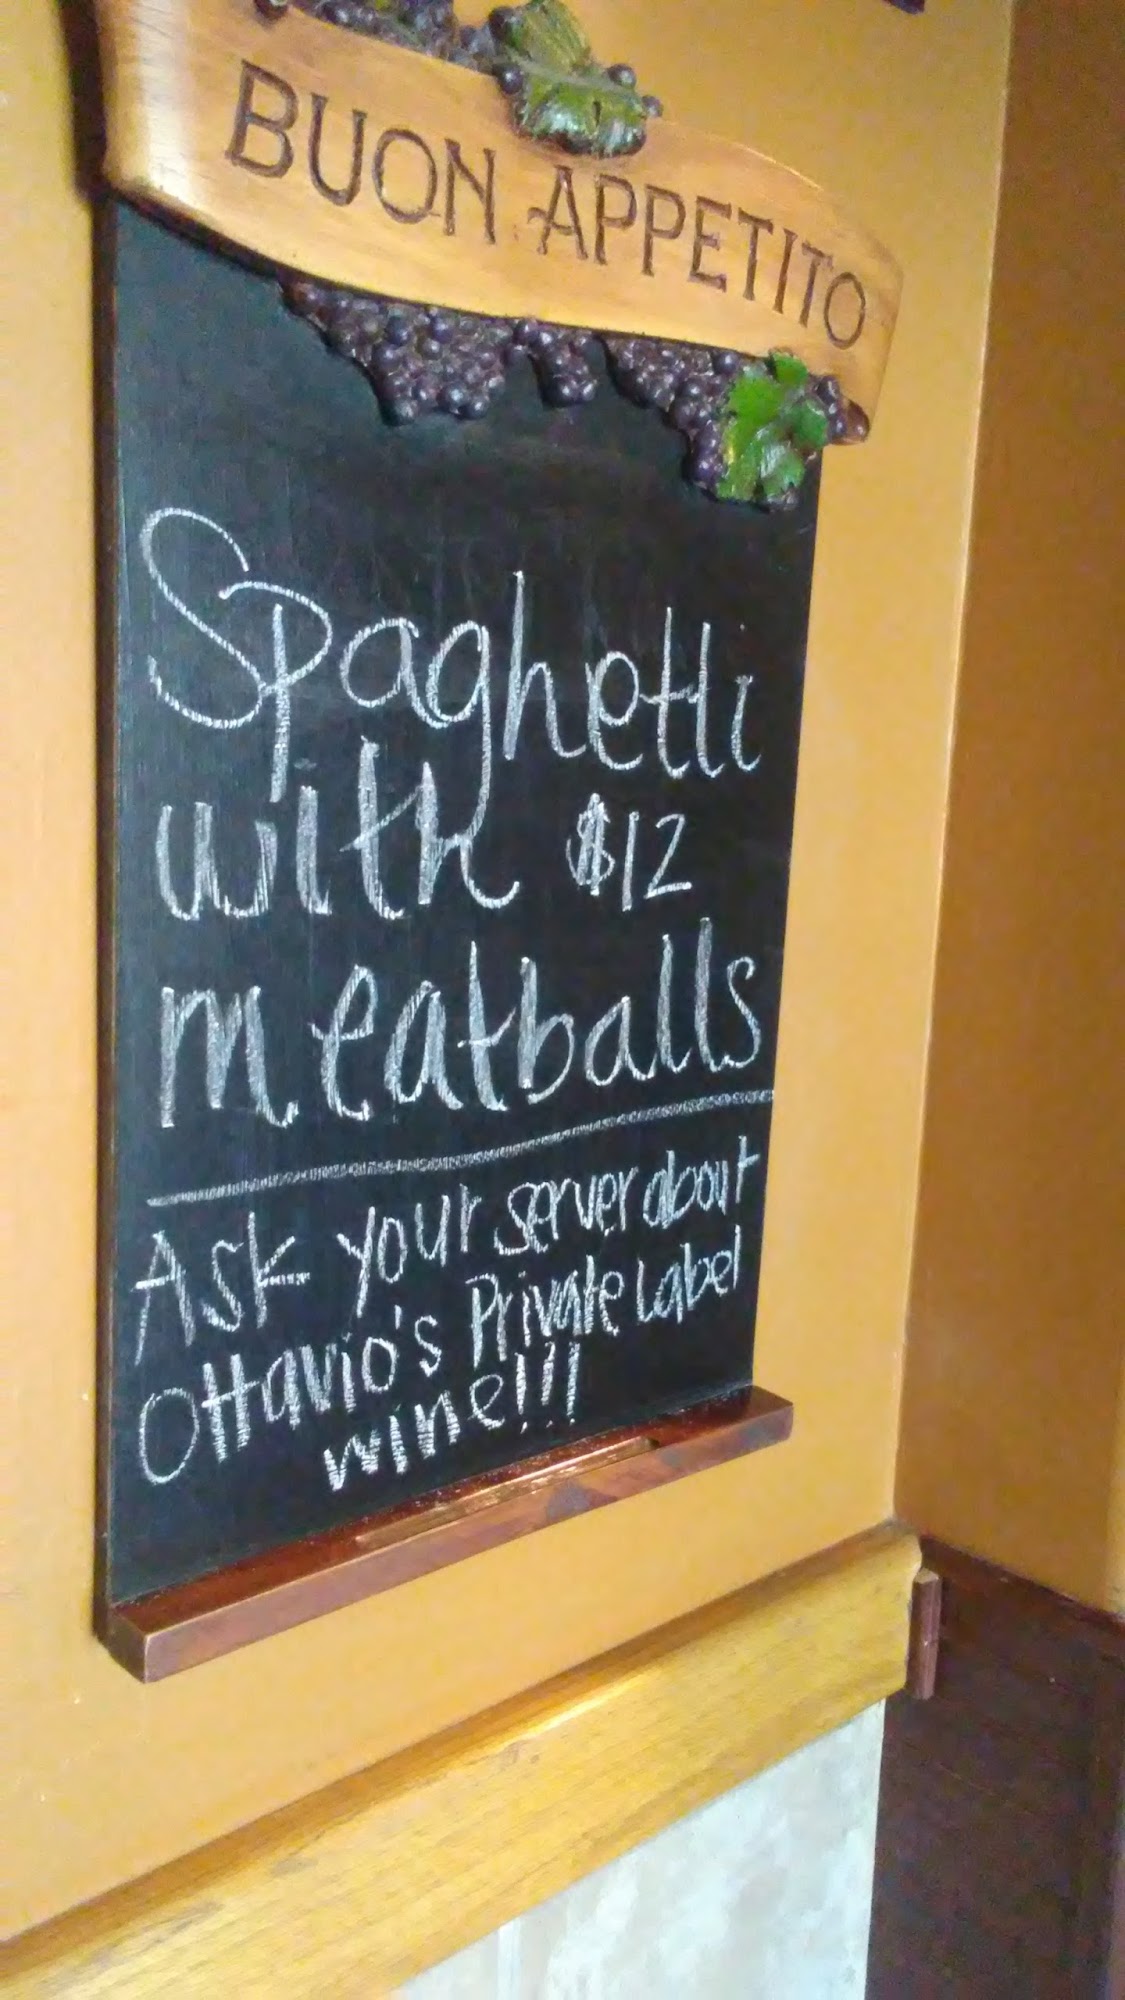 BUON APPETITO
Spaghetti
with $12
meatballs
Ask your server about
Ottavio's Private Label
wine!!!